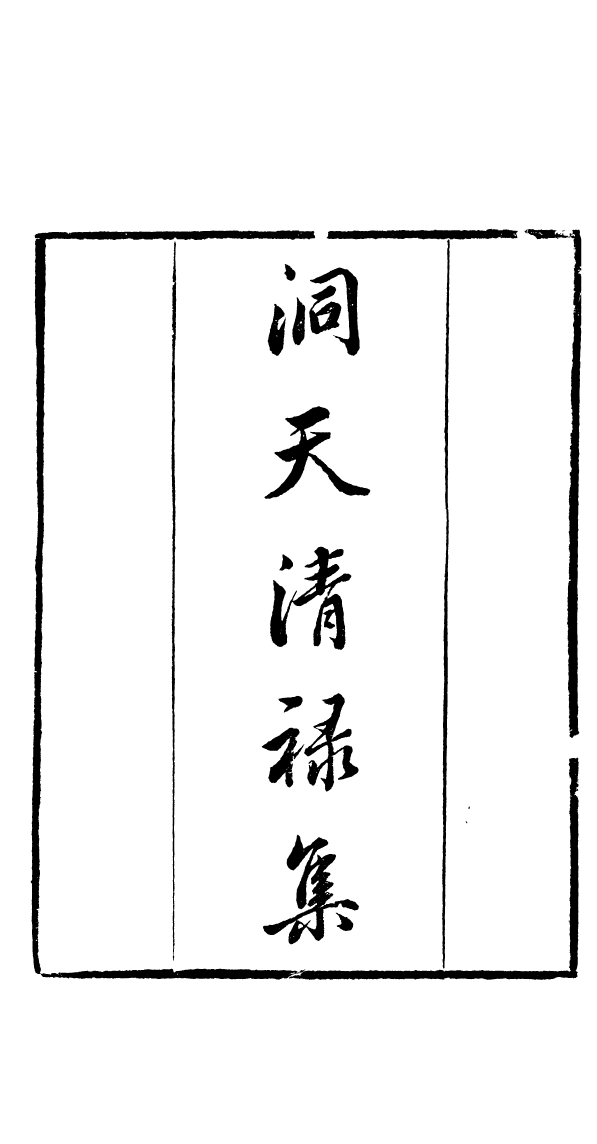 洞天清禄集